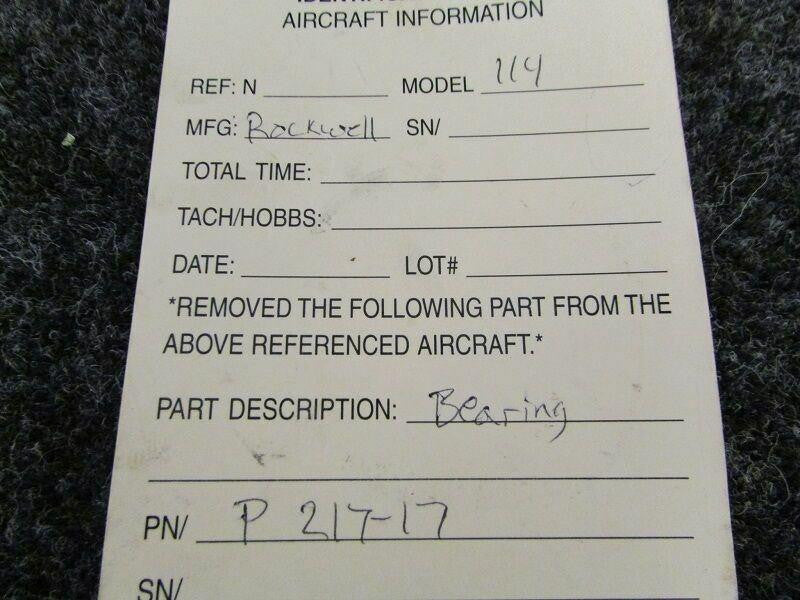 AIRCRAFT INFORMATION
REF: N MODEL 114
MFG: Rockwell SN/
TOTAL TIME:
TACH/HOBBS:
DATE: LOT#
*REMOVED THE FOLLOWING PART FROM THE
ABOVE REFERENCED AIRCRAFT.*
PART DESCRIPTION: Bearing
PN/ P 217-17
SN/